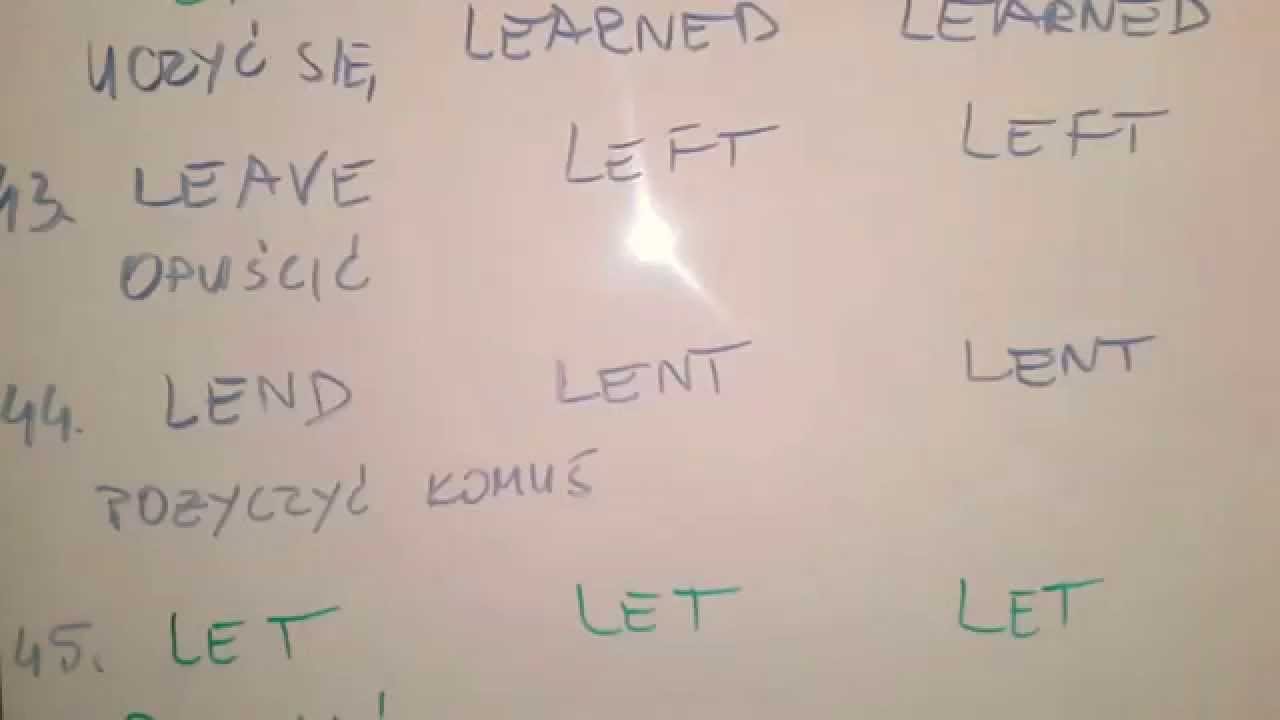 UCZYĆ SIĘ LEARNED LEARNED
43. LEAVE LEFT LEFT
OPUŚCIĆ
44. LEND LENT LENT
POZYCZYĆ KOMUŚ
45. LET LET LET